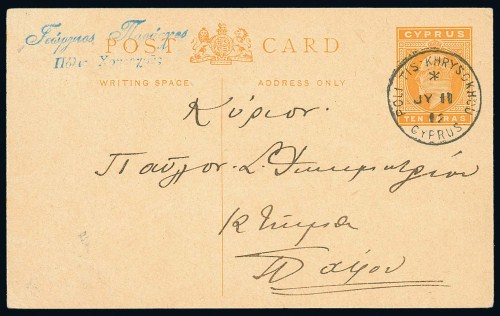 Γεώργιος
Πόλις Χρυσοχοῦς
POST CARD
WRITING SPACE
ADDRESS ONLY
CYPRUS
TEN PARAS
POLI-TIS-KHRYSOKHOU
*
JY 11
12
CYPRUS
Κύριον.
Παῦλον
Κτῆμα
Πάφου